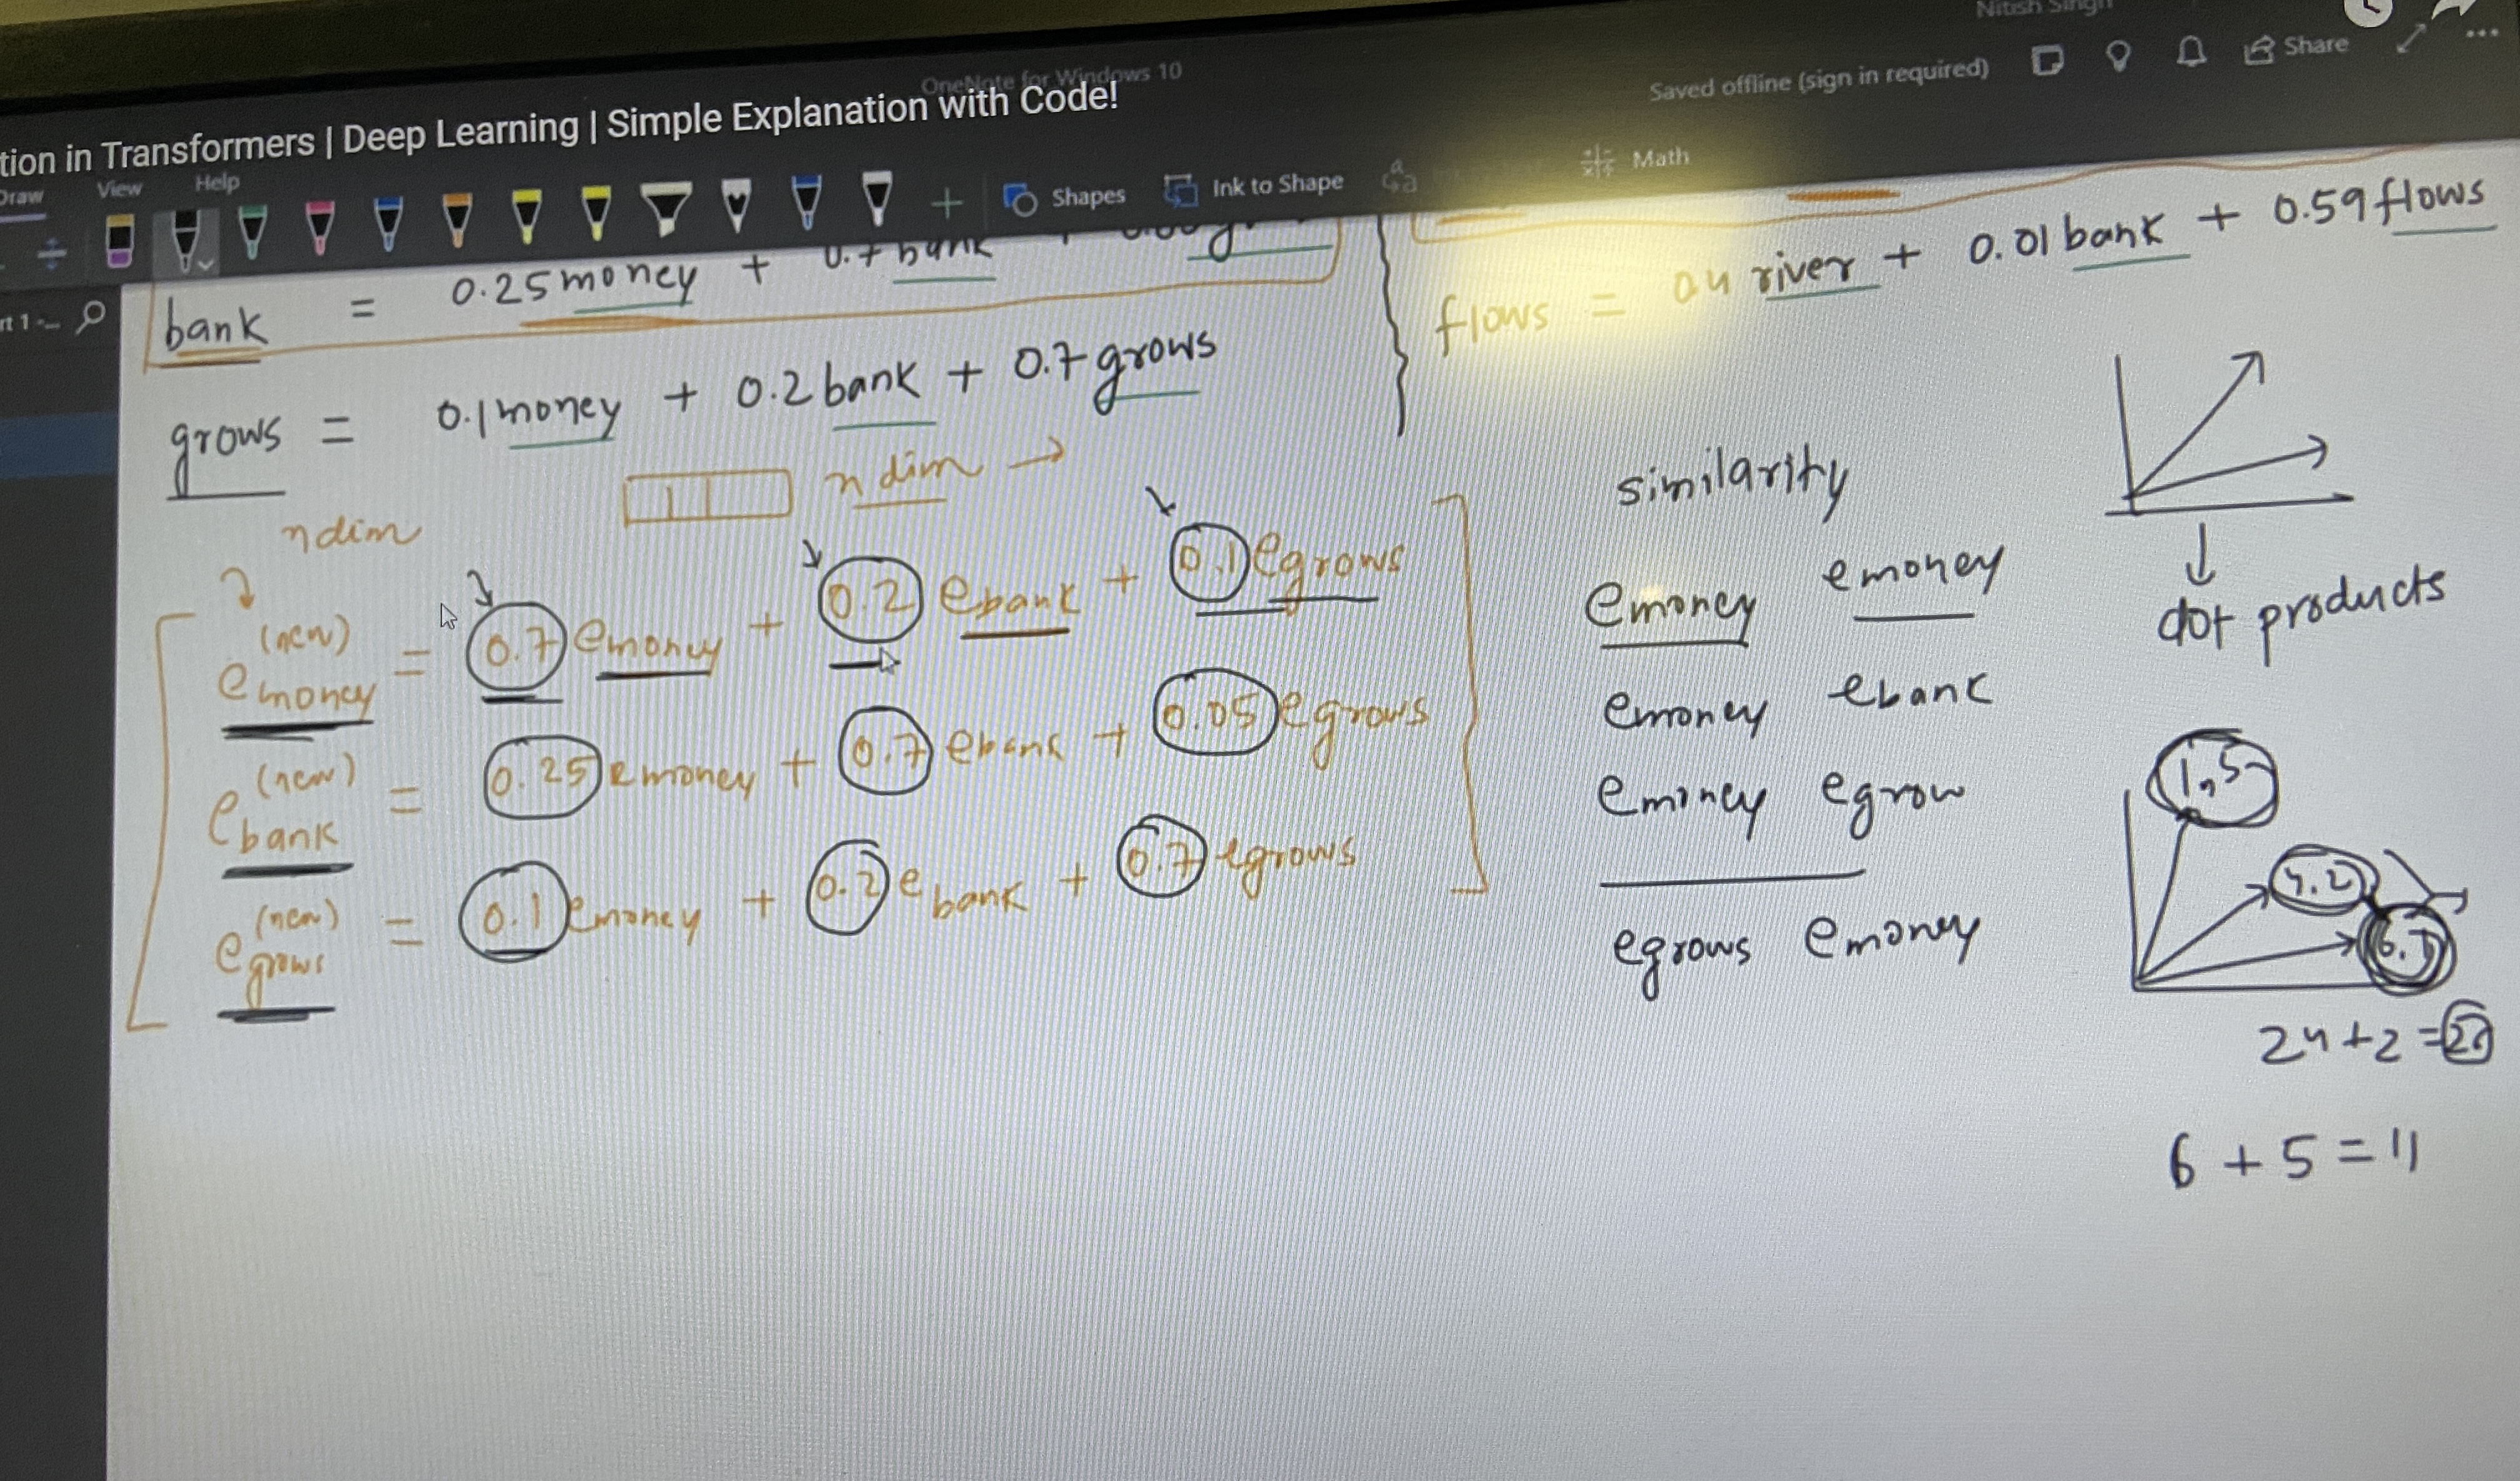 Nitish Singh
OneNote for Windows 10
Saved offline (sign in required)
Share
tion in Transformers | Deep Learning | Simple Explanation with Code!
Draw View Help
Shapes Ink to Shape Math
rt 1 -...
bank = 0.25 money + 0.7 bank +
flows = 0.4 river + 0.01 bank + 0.59 flows
grows = 0.1 money + 0.2 bank + 0.7 grows
n dim →
n dim
e money (new) = 0.7 e money + 0.2 e bank + 0.1 e grows
e bank (new) = 0.25 e money + 0.7 e bank + 0.05 e grows
e grows (new) = 0.1 e money + 0.2 e bank + 0.7 e grows
similarity
emoney emoney
emoney ebank
emoney egrow
egrows emoney
dot products
1,5
6.1
24+2=26
6 + 5 = 11